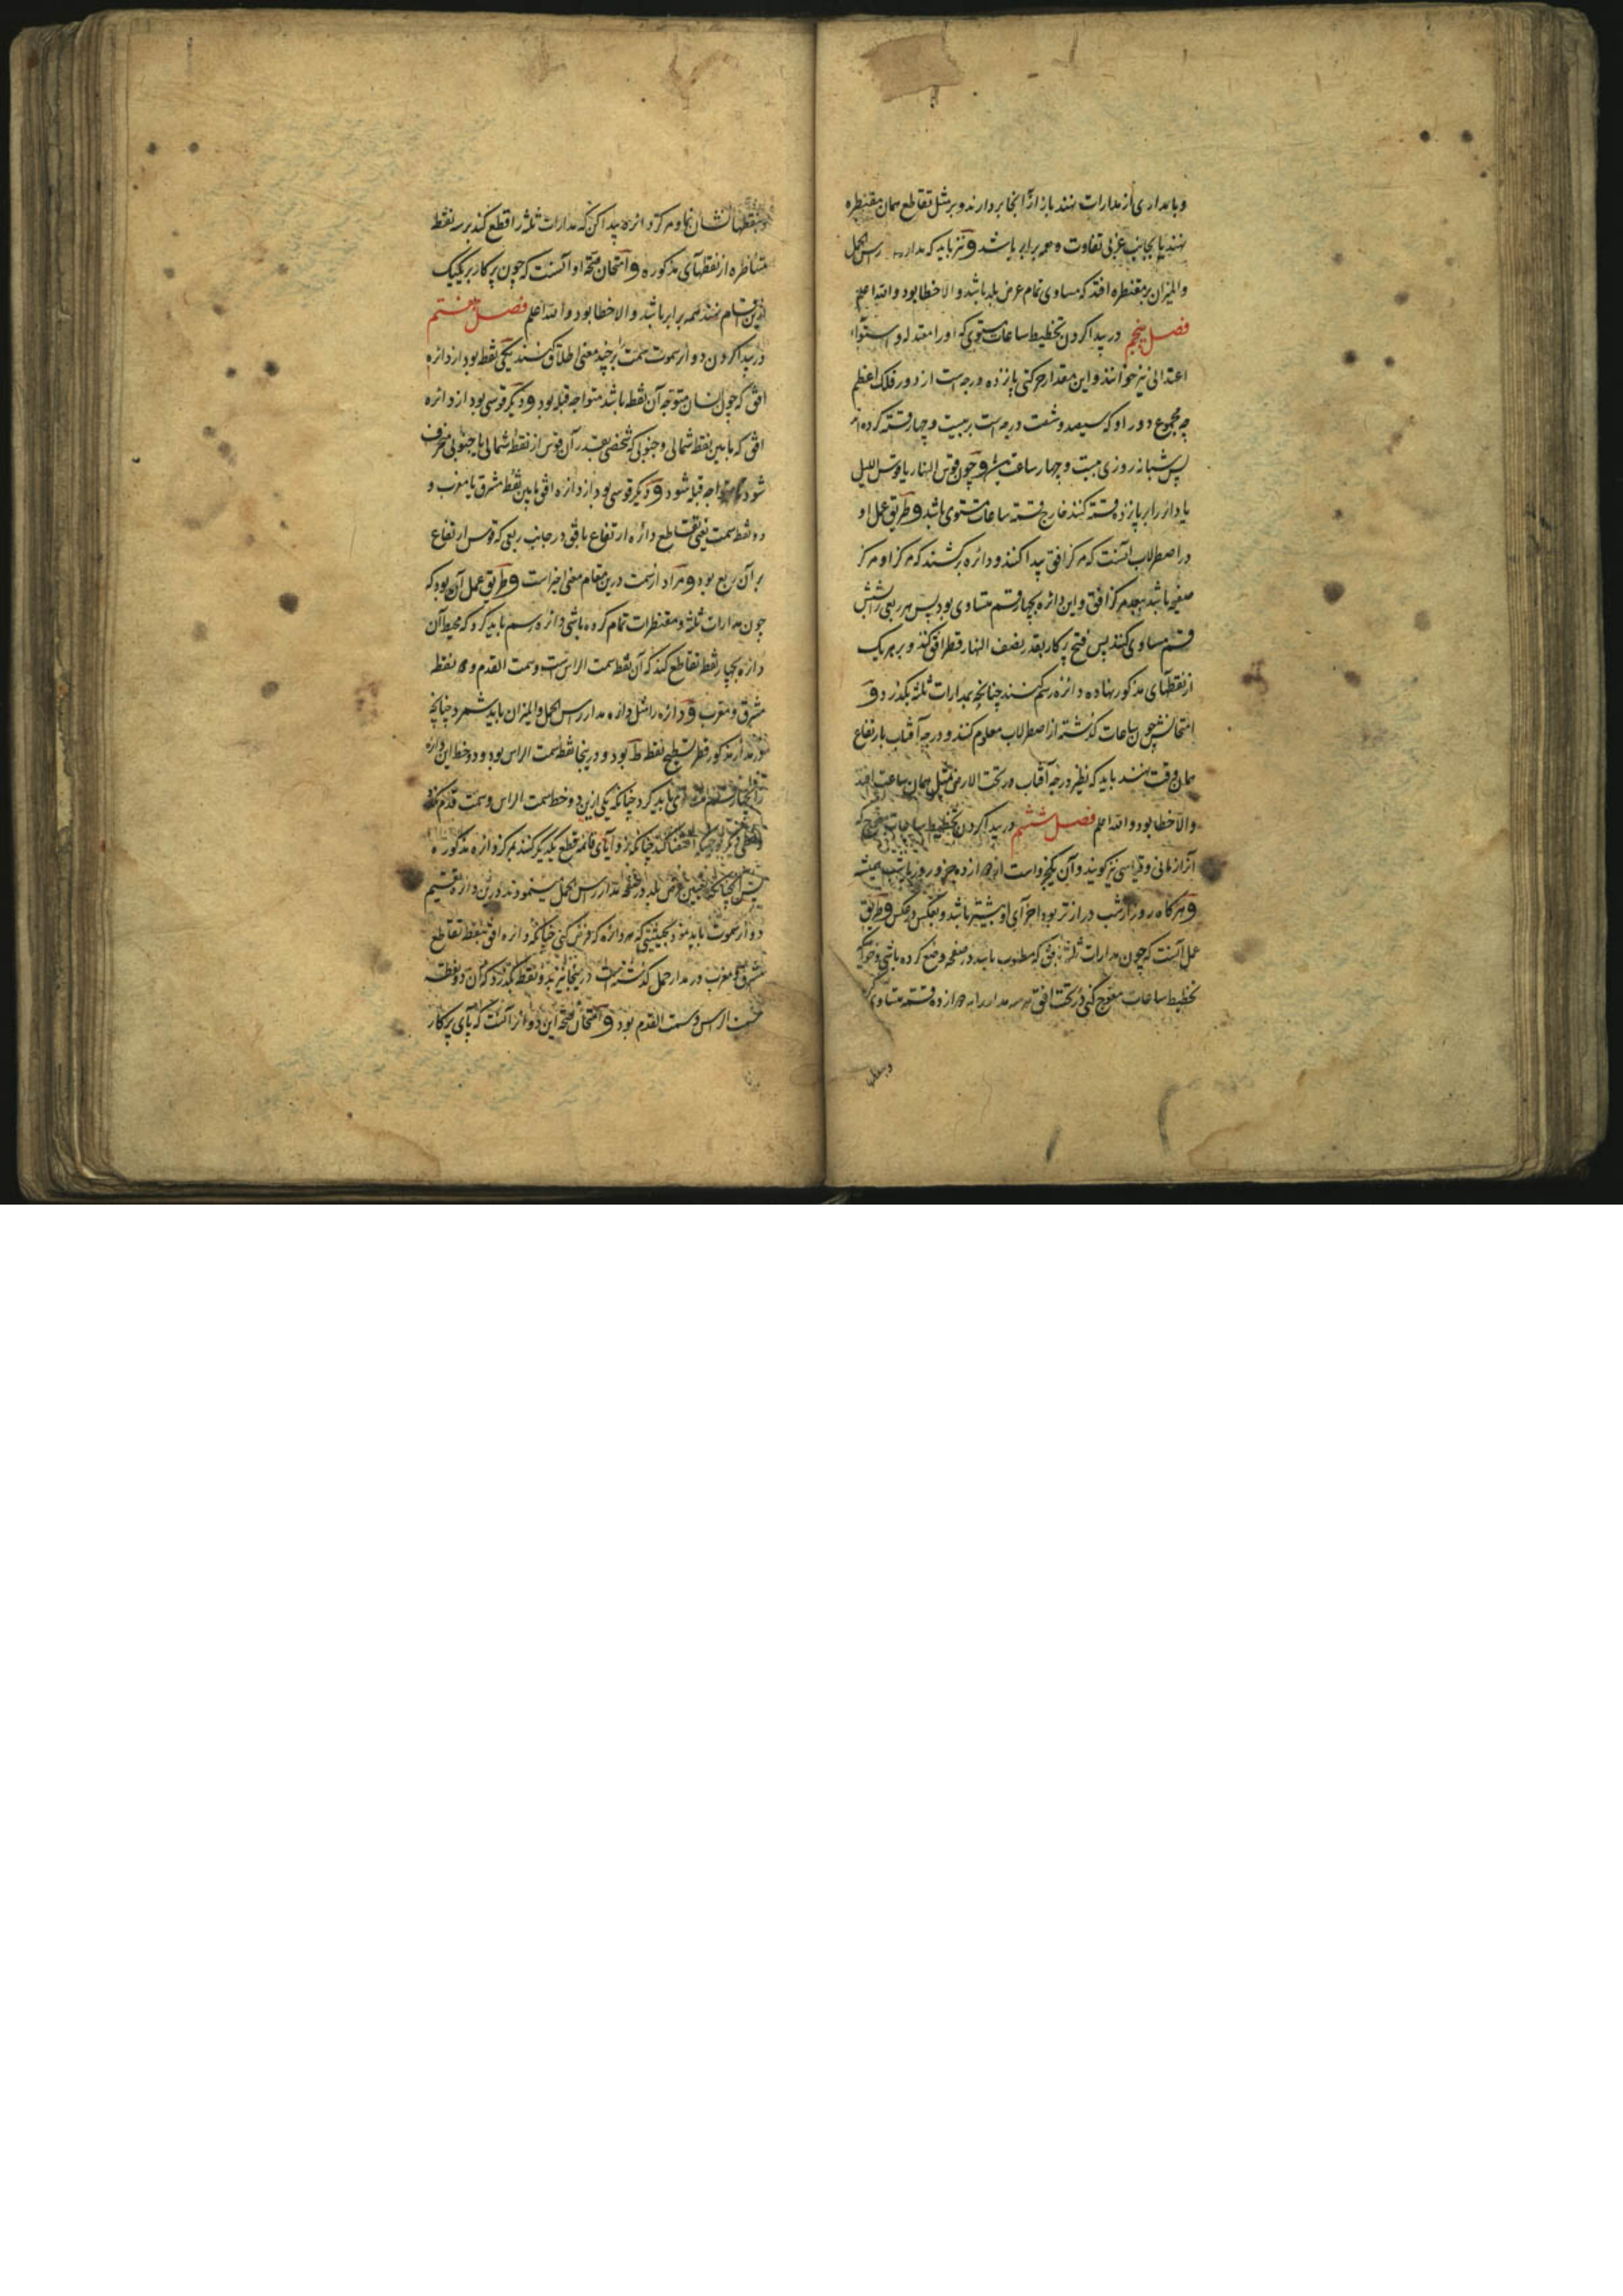 و یا بمداری از مدارات نهند باز از آنجا بردارند و بر مثل تقاطع همان مقنطره
نهند یا بجانب غربی تفاوت همه برابر باشد و نیز باید که مدار راس الحمل
والمیزان بر مقنطره افتد که مساوی تمام عرض بلد باشد والا خطا بود والله اعلم
فصل پنجم در پیدا کردن تخطیط ساعات مستوی که او را معتدله و استواء
اعتدالی نیز خوانند و این مقدار حرکتی پانزده درجه است از دور فلک اعظم
چه مجموع دور او که سیصد و شصت درجه است بر بیست و چهار قسمت کرده اند
پس شبانه روزی بیست و چهار ساعت و چون قوس النهار یا قوس اللیل
یا دائر را بر پانزده قسمت کنند خارج قسمت ساعات مستوی باشد و طریق عمل او
در اصطرلاب آنست که مرکز افق پیدا کنند و دائره برکشند که مرکز او مرکز
صفیحه باشد ببعد مرکز افق و این دائره بچهار قسم متساوی بود پس هر ربعی را شش
قسم مساوی کنند پس فتح پرکار بقدر نصف النهار قطر افق کند و بر هر یک
از نقطهای مذکور نهاده دائره رسم کنند چنانچه بمدارات ثلثه بگذرد و
امتحانش چون ساعات گذشته از اصطرلاب معلوم کنند و درجه آفتاب بارتفاع
همان وقت نهند باید که نظیر درجه آفتاب در تحت الارض مثل همان ساعت افتد
والا خطا بود والله اعلم فصل ششم در پیدا کردن تخطیط ساعات معوج که
آنرا زمانی و قیاسی نیز گویند و آن یکجزو است از دوازده جزو روز یا شب همیشه
و هر گاه روز از شب درازتر بود اجزای او بیشتر باشد و بعکس و طریق
عمل آنست که چون مدارات ثلثه که مطلوب باشد در صفحه وضع کرده باشی و خواهی که
تخطیط ساعات معوج کنی در تحت افق هر سه مدار را به دوازده قسمت متساوی
نقطها نشان نما و مرکز دائره پیدا کن که مدارات ثلثه را قطع کند بر سه نقطه
متناظره از نقطهای مذکوره و امتحان صحت او آنست که چون پرکار بر یکیک
ازین اقسام نهند همه برابر باشد والا خطا بود والله اعلم فصل هفتم
در پیدا کردن دوائر سموت سمت بر چند معنی اطلاق کنند یکی نقطه بود از دائره
افق که چون انسان متوجه آن نقطه باشد متواجه قبله بود و دیگر قوسی بود از دائره
افق که مابین نقطه شمالی و جنوبی که شخصی بقدر آن قوس از نقطه شمالی یا جنوبی منحرف
شود مواجه قبله شود و دیگر قوسی بود از دائره افق مابین نقطه مشرق یا مغرب و
و نقطه سمت یعنی تقاطع دائره ارتفاع با افق در جانب ربعی که قوس ارتفاع
بر آن ربع بود و مراد از سمت درین مقام معنی اخیر است و طریق عمل آن بود که
چون مدارات ثلثه و مقنطرات تمام کرده باشی دائره رسم باید کرد که محیط آن
دائره بچهار نقطه تقاطع کند که آن نقطه سمت الراس است و سمت القدم و نقطه
مشرق و مغرب و دائره را مثل دائره مدار راس الحمل والمیزان باید شمرد چنانچه
در مدار مذکور قطر تسطیح نقطه ط بود و درینجا نقطه سمت الراس بود و دو خط این دائره
را بچهار قسم باید کرد چنانکه یکی ازین دو خط سمت الراس و سمت قدم
چنانکه زوایای قائمه قطع یکدیگر کنند بمرکز دائره مذکوره
پس چنانکه عرض بلد در صفحه مدار راس الحمل درین دائره تقسیم
دوائر سموت باید نمود بحیثیتی که هر دائره که فرض کنی چنانکه دائره افق بنقطه تقاطع
مشرق و مغرب در مدار حمل گذشته است درینجا نیز بدو نقطه بگذرد که آن دو نقطه
سمت الراس و سمت القدم بود و امتحان صحت این دوائر آنست که پای پرکار